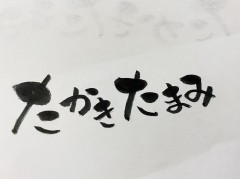 たかきたまみ